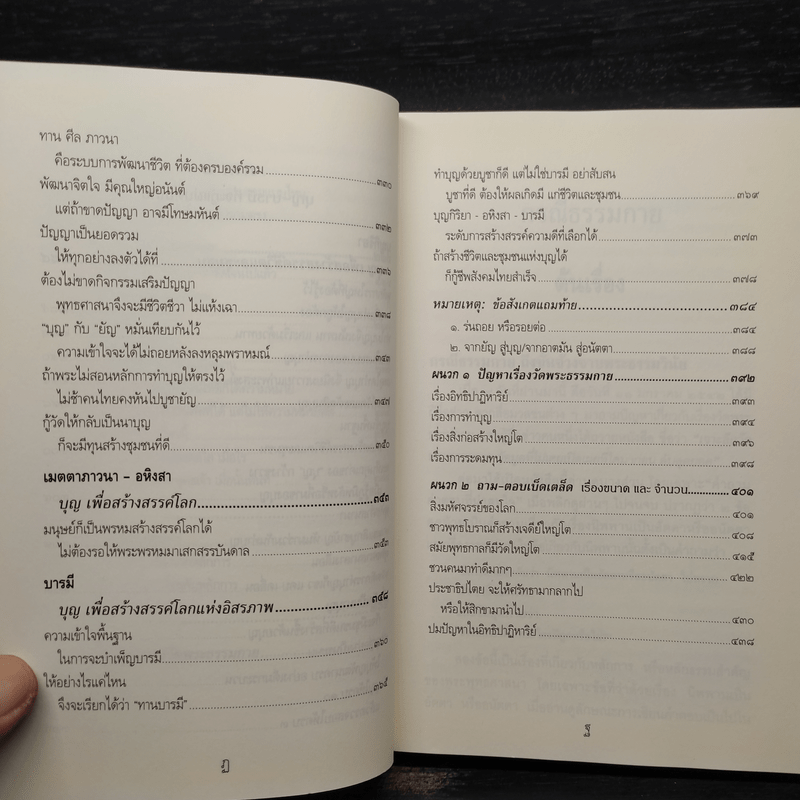 ทาน ศีล ภาวนา
คือระบบการพัฒนาชีวิต ที่ต้องครบองค์รวม ๓๓๐
พัฒนาจิตใจ มีคุณใหญ่อนันต์
แต่ถ้าขาดปัญญา อาจมีโทษมหันต์ ๓๓๒
ปัญญาเป็นยอดรวม
ให้ทุกอย่างลงตัวได้ที่ ๓๓๖
ต้องไม่ขาดกิจกรรมเสริมปัญญา
พุทธศาสนาจึงจะมีชีวิตชีวา ไม่แห้งเฉา ๓๓๘
"บุญ" กับ "ยัญ" หมั่นเทียบกันไว้
ความเข้าใจจะได้ไม่ถอยหลังลงหลุมพราหมณ์ ๓๔๓
ถ้าพระไม่สอนหลักการทำบุญให้ตรงไว้
ไม่ช้าคนไทยคงหันไปบูชายัญ ๓๔๗
กู้วัดให้กลับเป็นนาบุญ
ก็จะมีทุนสร้างชุมชนที่ดี ๓๕๐
เมตตาภาวนา – อหิงสา
บุญ เพื่อสร้างสรรค์โลก ๓๕๓
มนุษย์ก็เป็นพรหมสร้างสรรค์โลกได้
ไม่ต้องรอให้พระพรหมมาเสกสรรบันดาล ๓๕๓
บารมี
บุญ เพื่อสร้างสรรค์โลกแห่งอิสรภาพ ๓๕๘
ความเข้าใจพื้นฐาน
ในการจะบำเพ็ญบารมี ๓๖๐
ให้อย่างไรแค่ไหน
จึงจะเรียกได้ว่า "ทานบารมี" ๓๖๕
ฏ
ทำบุญด้วยบูชาก็ดี แต่ไม่ใช่บารมี อย่าสับสน
บูชาที่ดี ต้องให้ผลเกิดมี แก่ชีวิตและชุมชน ๓๖๙
บุญกิริยา - อหิงสา - บารมี
ระดับการสร้างสรรค์ความดีที่เลือกได้ ๓๗๓
ถ้าสร้างชีวิตและชุมชนแห่งบุญได้
ก็กู้ชีพสังคมไทยสำเร็จ ๓๗๘
หมายเหตุ: ข้อสังเกตแถมท้าย ๓๘๔
๑. ร่นถอย หรือรอยต่อ ๓๘๔
๒. จากยัญ สู่บุญ/จากอาตมัน สู่อนัตตา ๓๘๘
ผนวก ๑ ปัญหาเรื่องวัดพระธรรมกาย ๓๙๒
เรื่องอิทธิปาฏิหาริย์ ๓๙๓
เรื่องการทำบุญ ๓๙๔
เรื่องสิ่งก่อสร้างใหญ่โต ๓๙๖
เรื่องการระดมทุน ๓๙๘
ผนวก ๒ ถาม-ตอบเบ็ดเตล็ด เรื่องขนาด และ จำนวน ๔๐๑
สิ่งมหัศจรรย์ของโลก ๔๐๑
ชาวพุทธโบราณก็สร้างเจดีย์ใหญ่โต ๔๐๘
สมัยพุทธกาลก็มีวัดใหญ่โต ๔๑๕
ชวนคนมาทำดีมากๆ ๔๒๒
ประชาธิปไตย จะให้ศรัทธามากลากไป
หรือให้สิกขามานำไป ๔๓๐
ปมปัญหาในอิทธิปาฏิหาริย์ ๔๓๘
ฐ